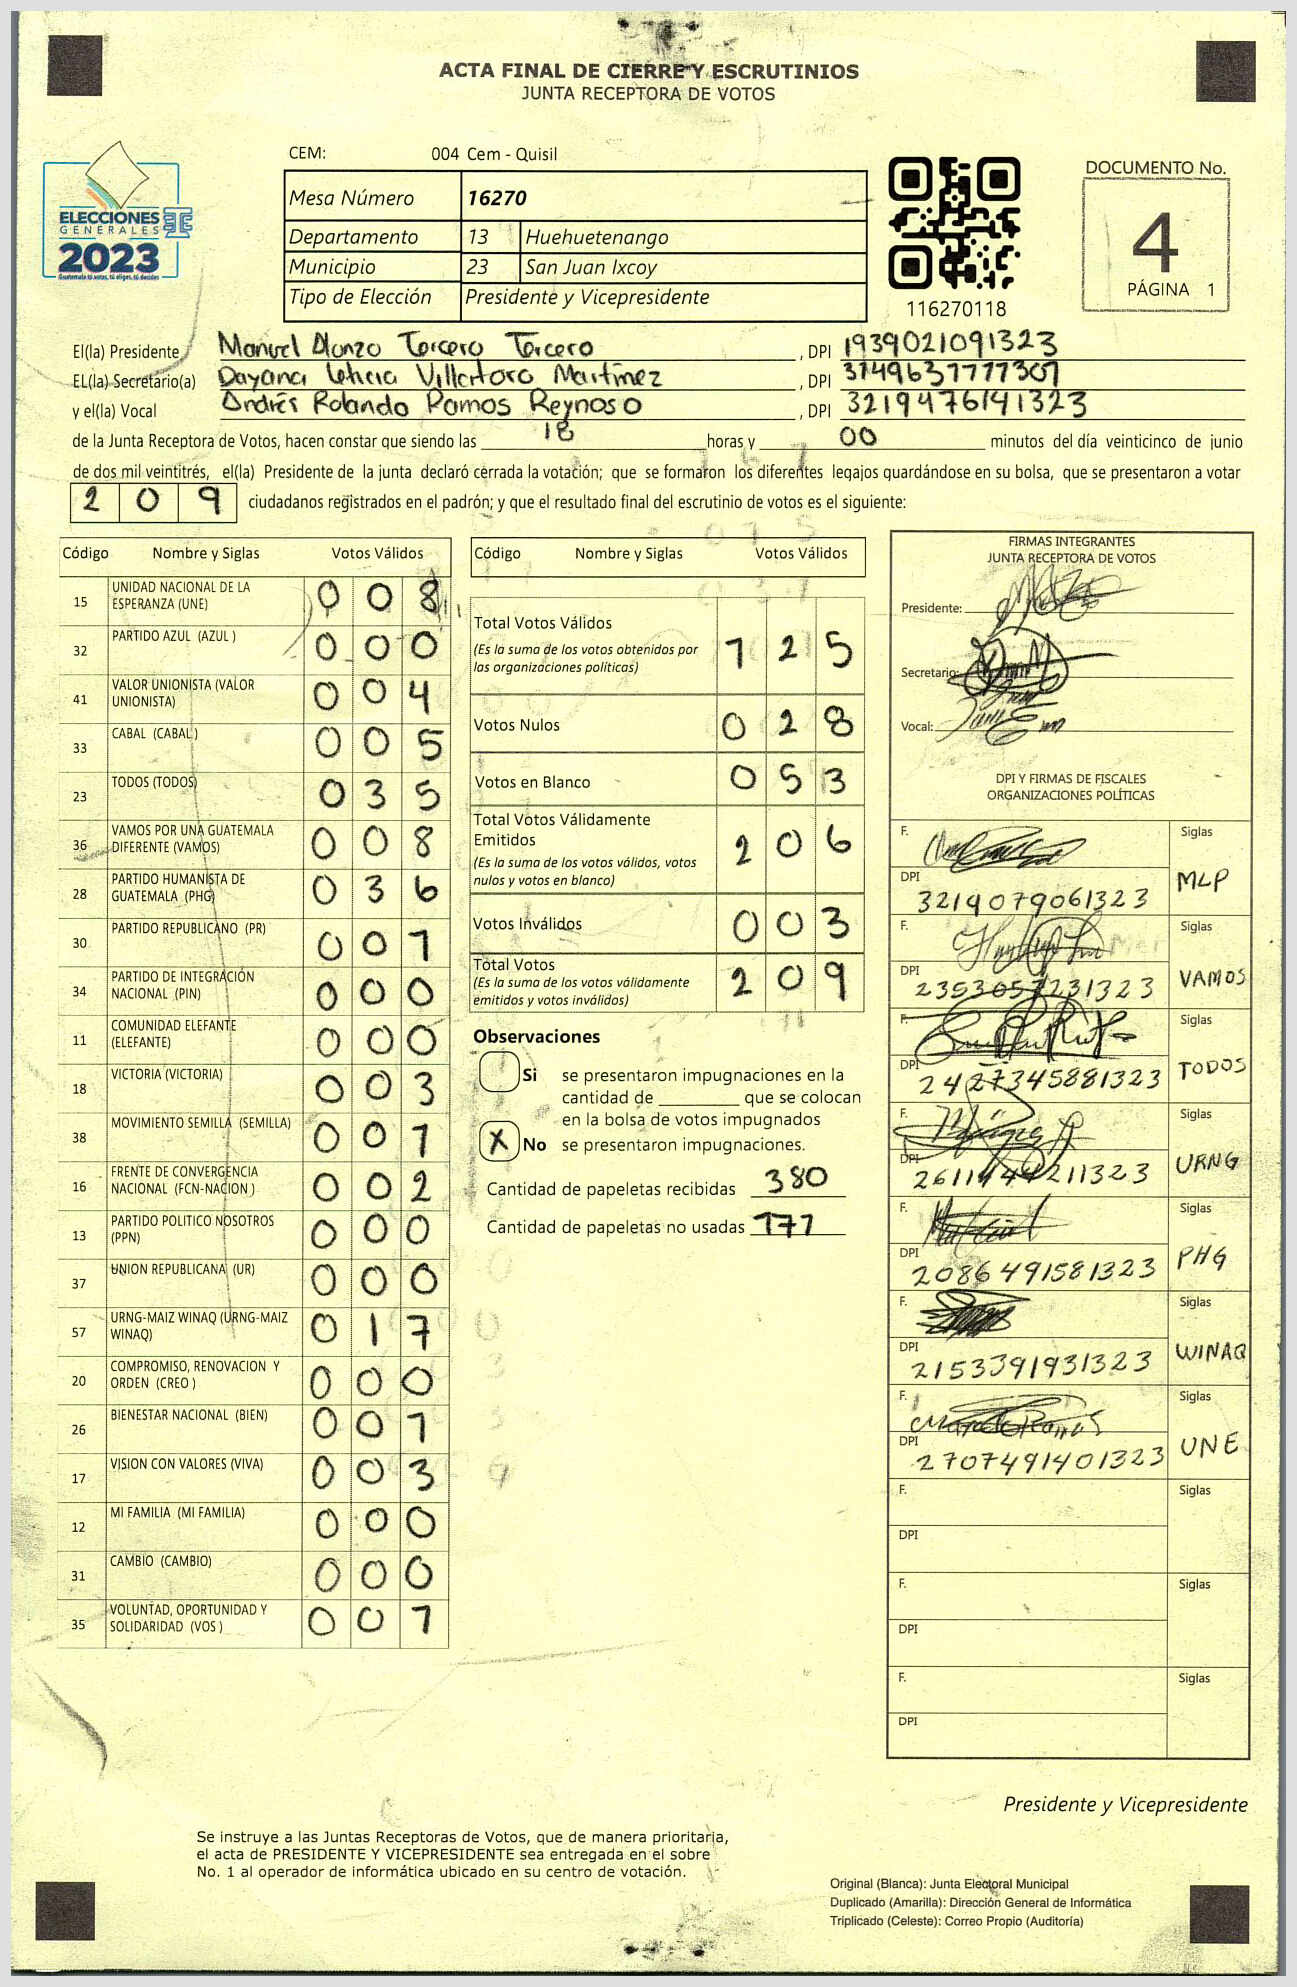 ACTA FINAL DE CIERRE Y ESCRUTINIOS
JUNTA RECEPTORA DE VOTOS
CEM: 004 Cem - Quisil
Mesa Número 16270
Departamento 13 Huehuetenango
Municipio 23 San Juan Ixcoy
Tipo de Elección Presidente y Vicepresidente
ELECCIONES
GENERALES
2023
116270118
DOCUMENTO No.
4
PÁGINA 1
El(la) Presidente Manuel Alonzo Tercero Tercero , DPI 1939021091323
EL(la) Secretario(a) Dayana Leticia Villatoro Martínez , DPI
y el(la) Vocal Andrés Rolando Ramos Reynoso , DPI 3219476141323
de la Junta Receptora de Votos, hacen constar que siendo las 18 horas y 00 minutos del día veinticinco de junio
de dos mil veintitrés, el(la) Presidente de la junta declaró cerrada la votación; que se formaron los diferentes legajos guardándose en su bolsa, que se presentaron a votar
209 ciudadanos registrados en el padrón; y que el resultado final del escrutinio de votos es el siguiente:
Código Nombre y Siglas Votos Válidos
15 UNIDAD NACIONAL DE LA ESPERANZA (UNE) 008
32 PARTIDO AZUL (AZUL ) 000
41 VALOR UNIONISTA (VALOR UNIONISTA) 004
33 CABAL (CABAL ) 005
23 TODOS (TODOS) 035
36 VAMOS POR UNA GUATEMALA DIFERENTE (VAMOS) 008
28 PARTIDO HUMANISTA DE GUATEMALA (PHG) 036
30 PARTIDO REPUBLICANO (PR) 001
34 PARTIDO DE INTEGRACIÓN NACIONAL (PIN) 000
11 COMUNIDAD ELEFANTE (ELEFANTE) 000
18 VICTORIA (VICTORIA) 003
38 MOVIMIENTO SEMILLA (SEMILLA) 001
16 FRENTE DE CONVERGENCIA NACIONAL (FCN-NACION ) 002
13 PARTIDO POLITICO NOSOTROS (PPN) 000
37 UNION REPUBLICANA (UR) 000
57 URNG-MAIZ WINAQ (URNG-MAIZ WINAQ) 017
20 COMPROMISO, RENOVACION Y ORDEN (CREO ) 000
26 BIENESTAR NACIONAL (BIEN) 001
17 VISION CON VALORES (VIVA) 003
12 MI FAMILIA (MI FAMILIA) 000
31 CAMBIO (CAMBIO) 000
35 VOLUNTAD, OPORTUNIDAD Y SOLIDARIDAD (VOS ) 001
Código Nombre y Siglas Votos Válidos
Total Votos Válidos 125
(Es la suma de los votos obtenidos por
las organizaciones políticas)
Votos Nulos 028
Votos en Blanco 053
Total Votos Válidamente
Emitidos 206
(Es la suma de los votos válidos, votos
nulos y votos en blanco)
Votos Inválidos 003
Total Votos 209
(Es la suma de los votos válidamente
emitidos y votos inválidos)
Observaciones
Si se presentaron impugnaciones en la
cantidad de ________ que se colocan
en la bolsa de votos impugnados
X No se presentaron impugnaciones.
Cantidad de papeletas recibidas 380
Cantidad de papeletas no usadas 171
FIRMAS INTEGRANTES
JUNTA RECEPTORA DE VOTOS
Presidente:
Secretario:
Vocal:
DPI Y FIRMAS DE FISCALES
ORGANIZACIONES POLÍTICAS
F. Siglas
DPI 3219079061323 MLP
F. Siglas
DPI 2353057231323 VAMOS
F. Siglas
DPI 2427345881323 TODOS
F. Siglas
DPI URNG
F. Siglas
DPI 2086491581323 PHG
F. Siglas
DPI 2153391931323 WINAQ
F. Siglas
DPI 2707491401323 UNE
F. Siglas
DPI
F. Siglas
DPI
F. Siglas
DPI
Presidente y Vicepresidente
Se instruye a las Juntas Receptoras de Votos, que de manera prioritaria,
el acta de PRESIDENTE Y VICEPRESIDENTE sea entregada en el sobre
No. 1 al operador de informática ubicado en su centro de votación.
Original (Blanca): Junta Electoral Municipal
Duplicado (Amarilla): Dirección General de Informática
Triplicado (Celeste): Correo Propio (Auditoría)